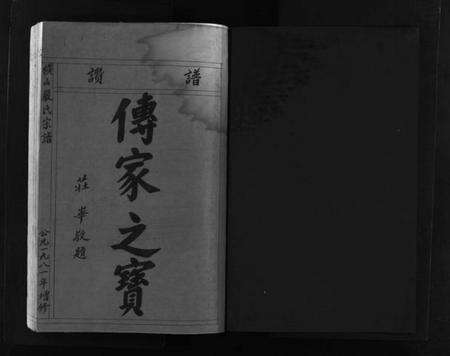 譜讚
傳家之寶
莊華敬題
嚴氏宗譜
公元一九八一年增修